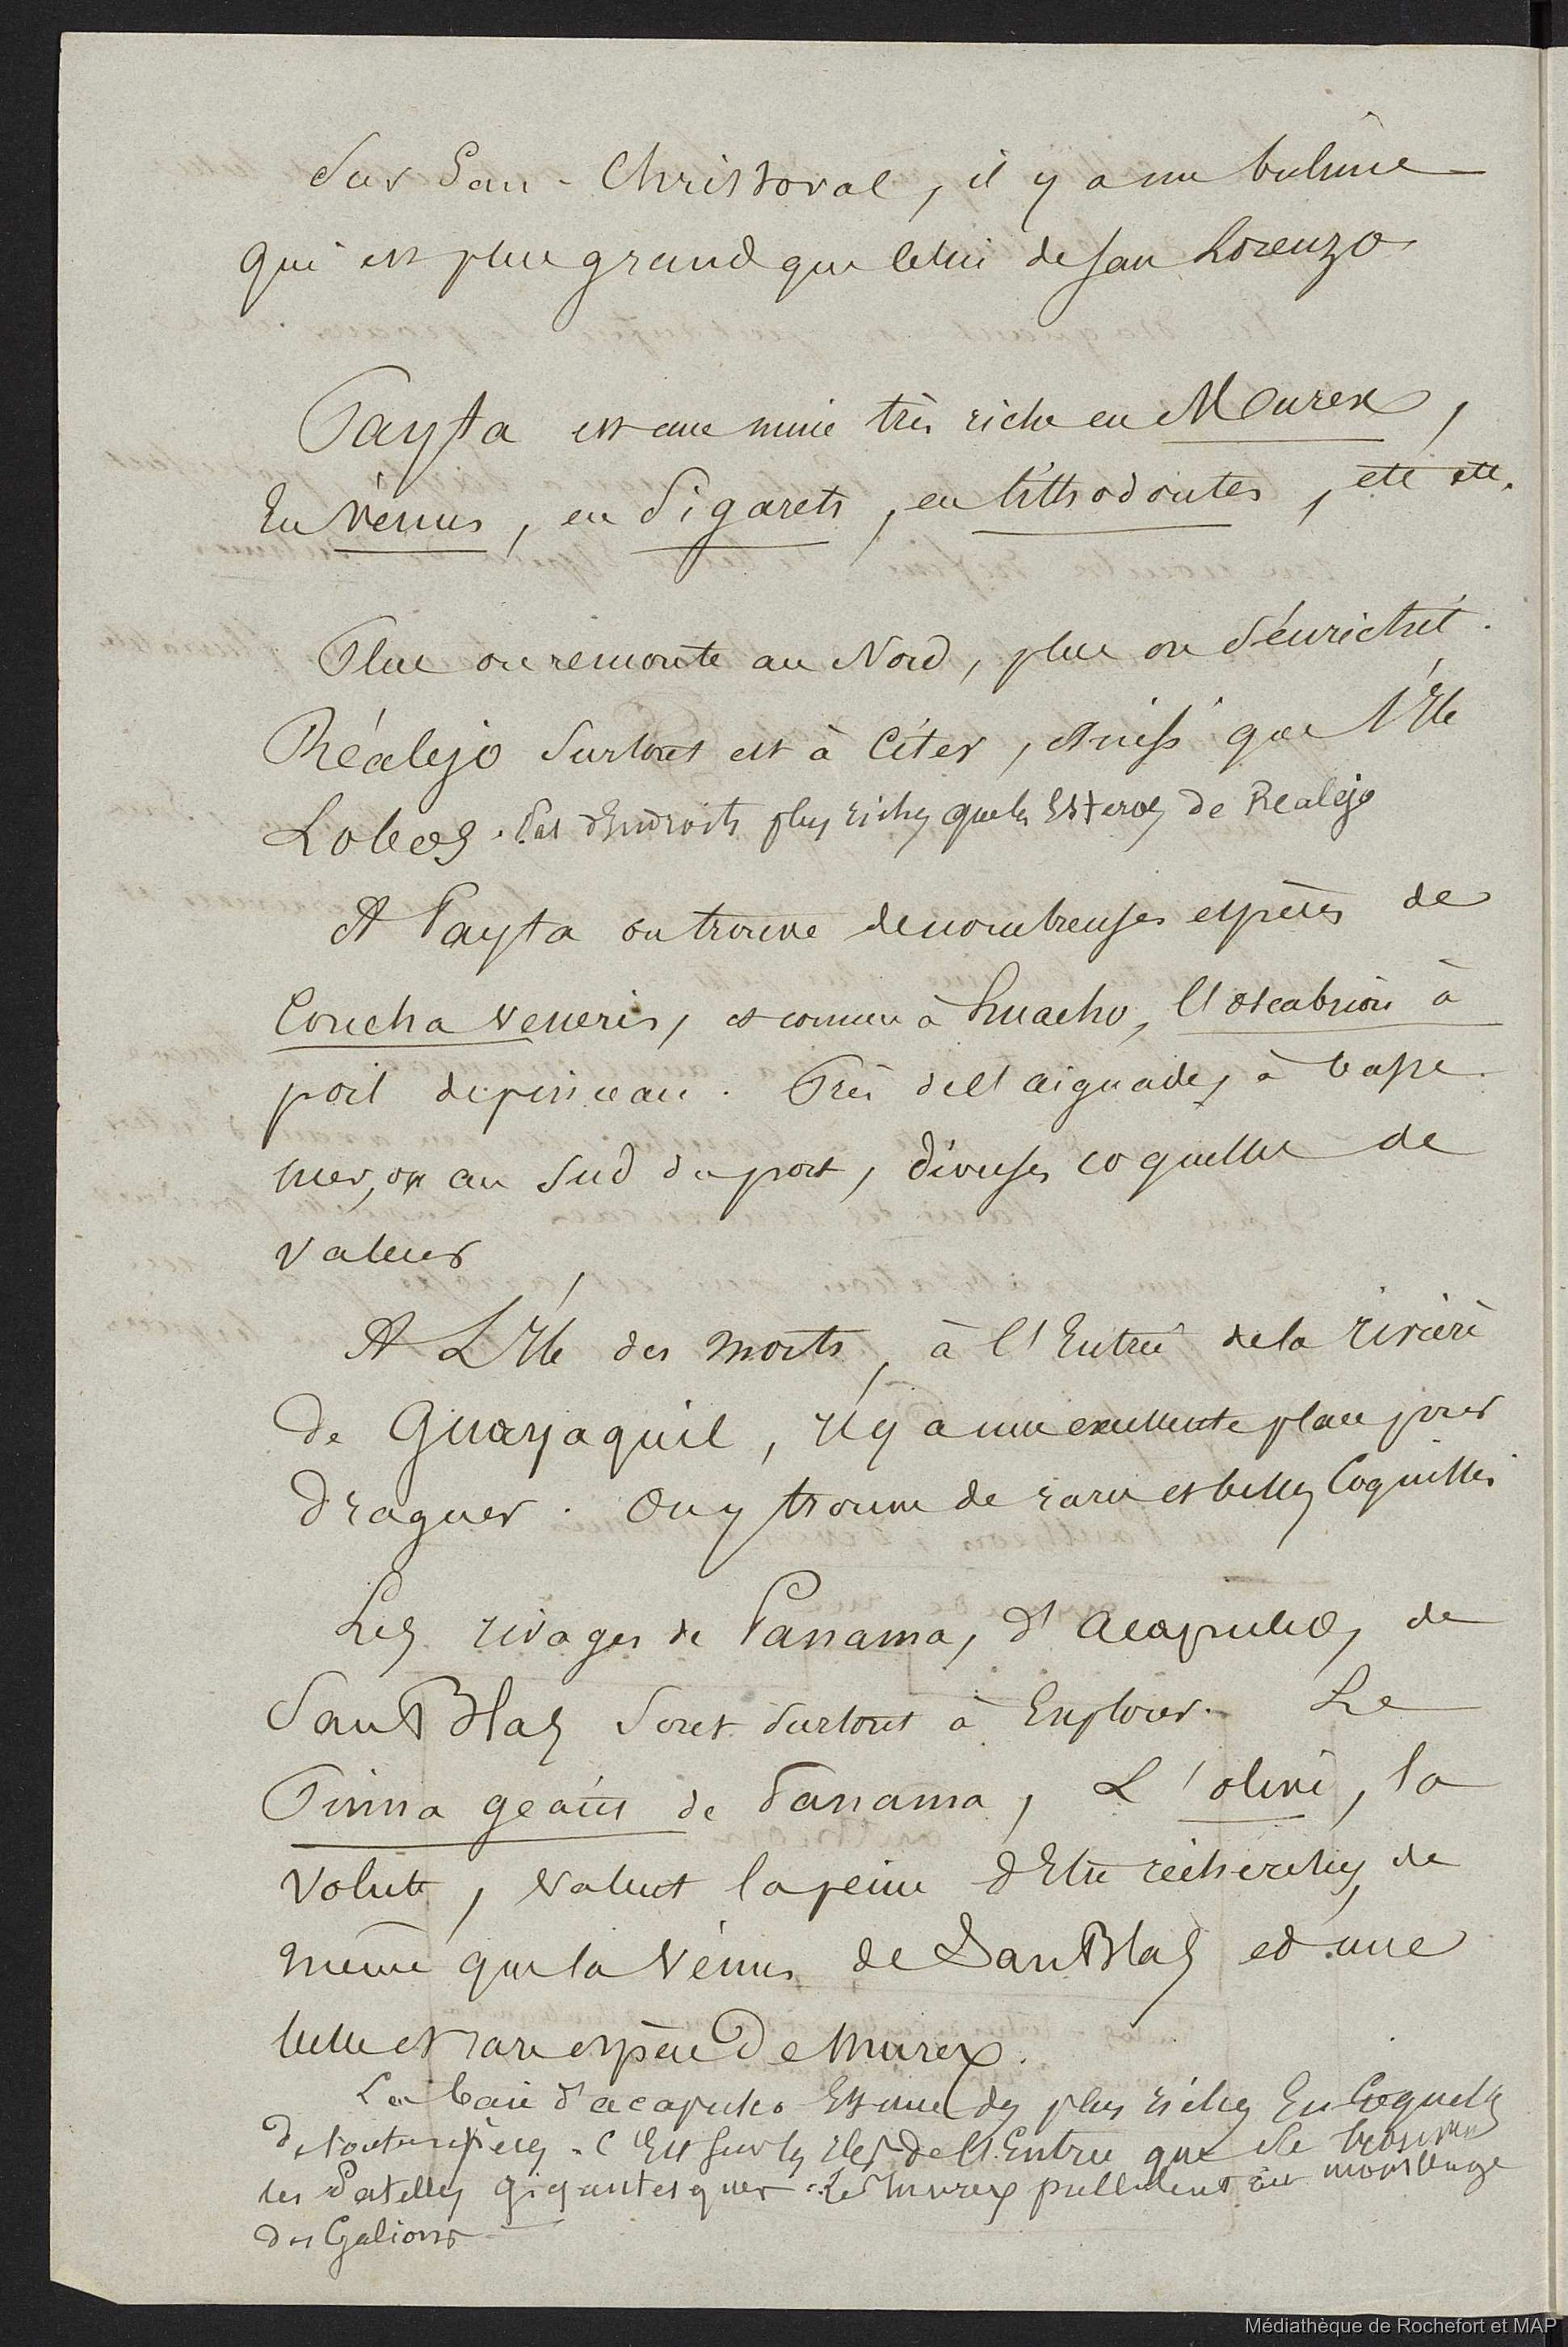 Sur San-Christoval, il y a un bulime
qui est plus grand que celui de San Lorenzo
Payta est une mine très riche en Murex,
En vénus, en Sigarets, en lithodontes, etc etc.
Plus on remonte au Nord, plus on s'enrichit.
Réalejo surtout est à citer, ainsi que l'Ile
Lobos. Pas d'Endroits plus riches que les Esteros de Realejo
A Payta on trouve de nombreuses espèces de
Concha veneris, et comme à huacho, l'oscabrion à
poil de pinceau. Près de l'aiguade, à basse
mer, ou au Sud du port, diverses coquilles de
valeur
A L'Ile des morts, à l'Entrée de la rivière
de Guayaquil, il y a une excellente place pour
draguer. On y trouve de rares et belles Coquilles
Les rivages de Panama, d'Acapulco, de
San Blas sont surtout à Explorer. Le
Pinna géants de Panama, L'olive, la
volute, valent la peine d'Etre recherchés, de
même que la Vénus de San Blas et une
belle et rare espèce De Murex.
La baie d'acapulco Est une des plus riches En Coquilles
de toutes espèces. C'Est sur les Iles de l'Entrée que se trouvent
les Patelles gigantesques. Les Murex pullulent au mouillage
des Galions